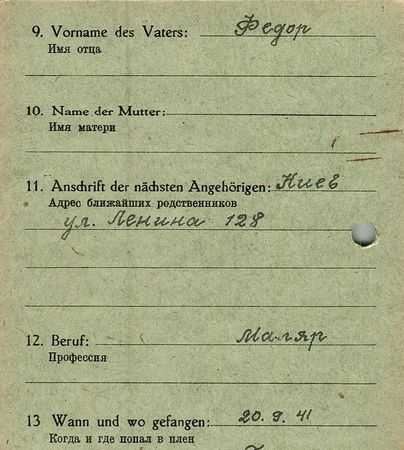 9. Vorname des Vaters: Федор
Имя отца
10. Name der Mutter:
Имя матери
11. Anschrift der nächsten Angehörigen: Киев
Адрес ближайших родственников
ул. Ленина 128
12. Beruf: Маляр
Профессия
13 Wann und wo gefangen: 20. 9. 41
Когда и где попал в плен